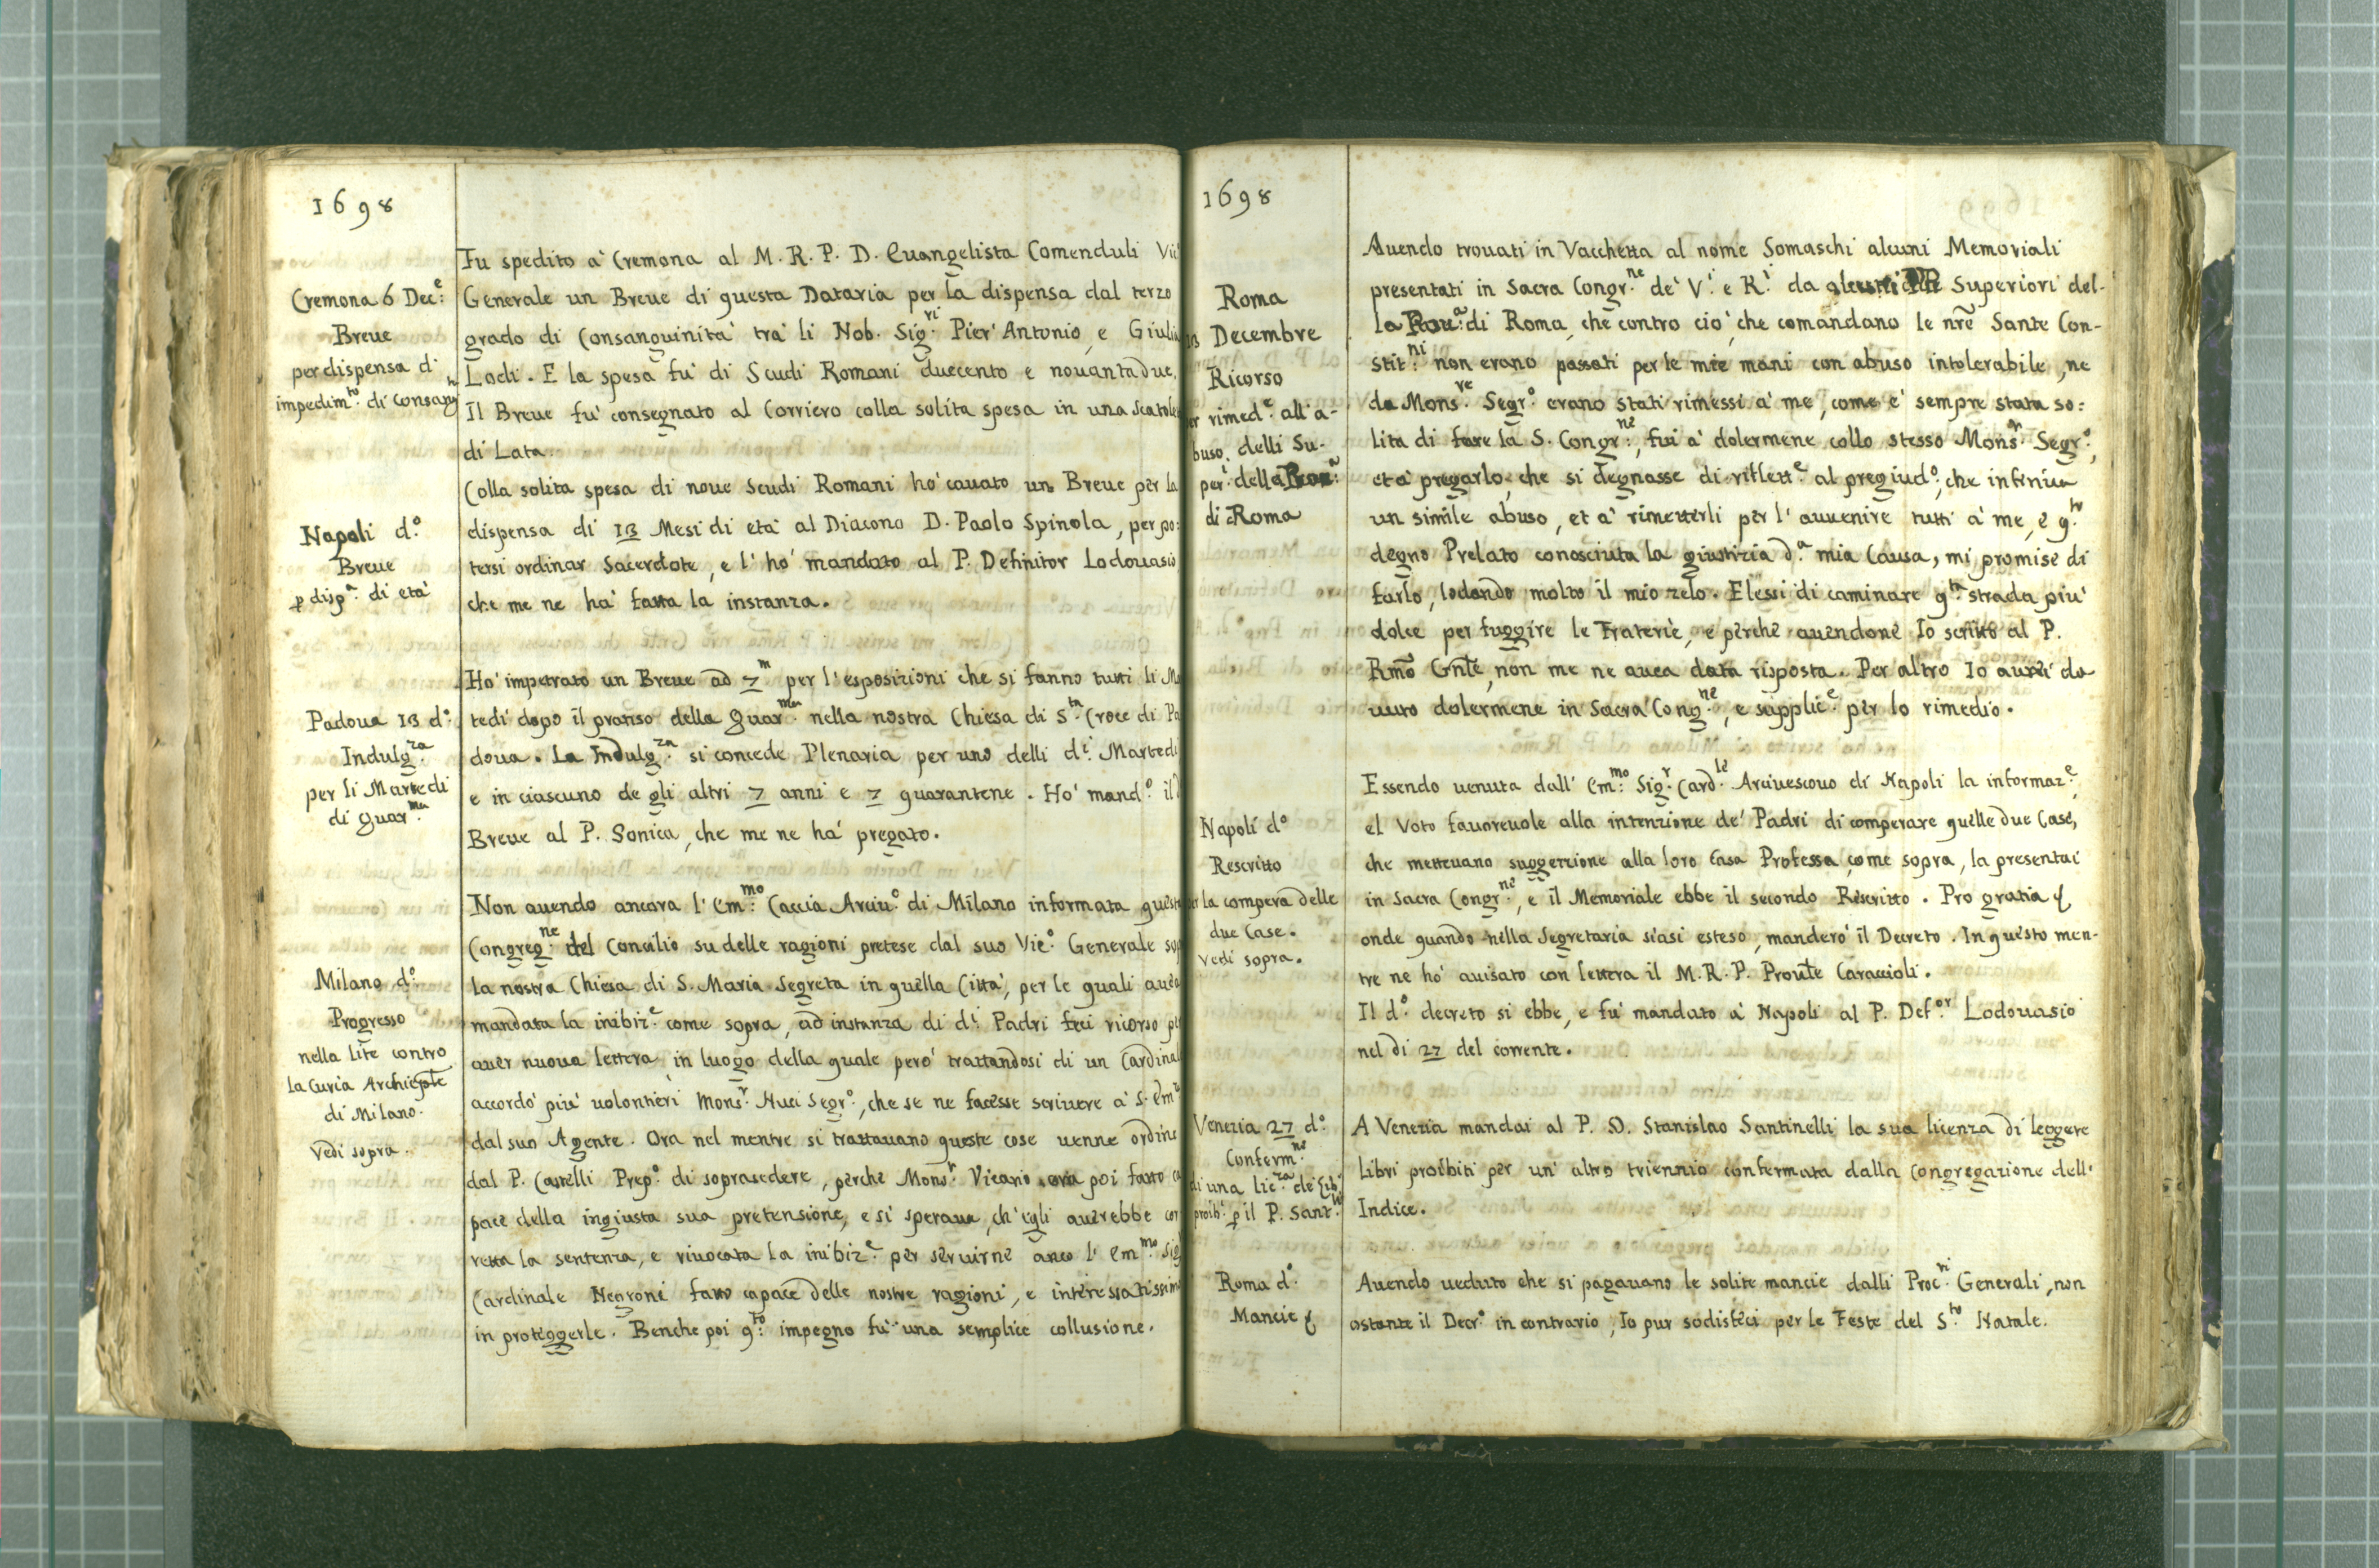 1698
Cremona 6 Dec.e:
Breue
per dispensa d'
impedim.to di consang
Fu spedito a' Cremona al M. R. P. D. Euangelista Comenduli Vic
Generale un Breue di questa Dataria per la dispensa dal terzo
grado di Consanguinita' tra' li Nob. Sig.ri Pier' Antonio, e Giulia
Lodi. E la spesa fu' di Scudi Romani duecento e nouantadue.
Il Breue fu' consegnato al Corriero colla solita spesa in una scatola
di Lata.
Napoli d.o
Breue
p disp.a di eta'
Colla solita spesa di noue Scudi Romani ho' cauato un Breue per la
dispensa di 13 Mesi di eta' al Diacono D. Paolo Spinola, per po:
tersi ordinar Sacerdote, e l' ho' mandato al P. Definitor Lodouasio
che me ne ha' fatta la instanza.
Padoua 13 d.o
Indulg.za
per li Martedi
di quar.ma
Ho' impetrato un Breue ad 7.m per l'esposizioni che si fanno tutti li Ma
tedi' dopo il pranso della quar.ma nella nostra Chiesa di S.ta Croce di Pa
doua. La Indulg.za si concede Plenaria per uno delli d.i Martedi
e in ciascuno de gli altri 7 anni e 7 quarantene. Ho' mand.o il
Breue al P. Sonica, che me ne ha' pregato.
Milano d.o
Progresso
nella lite contro
la Curia Archiepte
di Milano.
Vedi sopra.
Non auendo ancora l' Em.mo Caccia Arciu.o di Milano informata questa
Congreg.ne del Concilio su delle ragioni pretese dal suo Vic.o Generale sop
la nostra Chiesa di S. Maria Segreta in quella Citta', per le quali auea
mandata la inibiz.e come sopra, ad instanza di d.i Padri feci ricorso pe
auer nuoua lettera, in luogo della quale pero' trattandosi di un Cardinal
accordo' piu' uolontieri Mons.r Nuci Segr.o, che se ne facesse scriuere a' S. Em.
dal suo Agente. Ora nel mentre si trattauano queste cose uenne ordine
dal P. Castelli Prep.o di soprasedere, perche Mons.r Vicario era poi fatto ca
pace della ingiusta sua pretensione, e si speraua, ch'egli auerebbe cor
retta la sentenza, e riuocata la inibiz.e per seruirne anco l' Em.mo Sig
Cardinale Negroni fatto capace delle nostre ragioni, e interessatissim
in proteggerle. Benche poi q.to: impegno fu' una semplice collusione.
1698
Roma
13 Decembre
Ricorso
per rimed.e all'a-
buso delli Su-
per.i della Prou.a
di Roma
Auendo trouati in Vacchetta al nome Somaschi alcuni Memoriali
presentati in Sacra Congr.ne de' V.i e R.i da Superiori del-
la Prou.a: di Roma, che contro cio', che comandano le nre Sante Con-
stit.ni: non erano passati per le mie mani con abuso intolerabile, ne
da Mons.re Segr.o erano stati rimessi a' me, come e' sempre stata so:
lita di fare la S. Congr.ne:, fui a' dolermene collo stesso Mons.r Segr.o,
et a' pregarlo, che si degnasse di riflett.e al pregiud.o, che inferiua
un simile abuso, et a' rimetterli per l'auuenire tutti a' me, e q.to
degno Prelato conosciuta la giustizia d.a mia Causa, mi promise di
farlo, lodando molto il mio zelo. Elessi di caminare q.ta strada piu'
dolce per fuggire le Fraterie, e perche auendone Io scritto al P.
Rmo Gnle, non me ne auea data risposta. Per altro Io aurei do
uuto dolermene in Sacra Cong.ne, e supplic.e per lo rimedio.
Napoli d.o
Rescritto
per la compera delle
due Case.
Vedi sopra.
Essendo uenuta dall' Em.mo: Sig.r Card.le Arciuescouo di Napoli la informaz.e,
el Voto fauoreuole alla intenzione de' Padri di comperare quelle due Case,
che metteuano suggezzione alla loro Casa Professa, come sopra, la presentai
in Sacra Congr.ne, e il Memoriale ebbe il secondo Rescritto. Pro gratia &
onde quando nella Segretaria siasi esteso, mandero' il Decreto. In questo men-
tre ne ho' auisato con lettera il M. R. P. Proule Caraccioli.
Il d.o decreto si ebbe, e fu' mandato a' Napoli al P. Def.or Lodouasio
nel di 27 del corrente.
Venezia 27 d.o
Conferm.ne
di una lic.za de' Lib.
proib.i p il P. Sant.li
A Venezia mandai al P. D. Stanislao Santinelli la sua licenza di leggere
Libri proibiti per un' altro triennio confermata dalla Congregazione dell'
Indice.
Roma d.o
Mancie &
Auendo ueduto che si pagauano le solite mancie dalli Proc.ri Generali, non
ostante il Decr.o in contrario, Io pur sodisfeci per le Feste del S.to Natale.